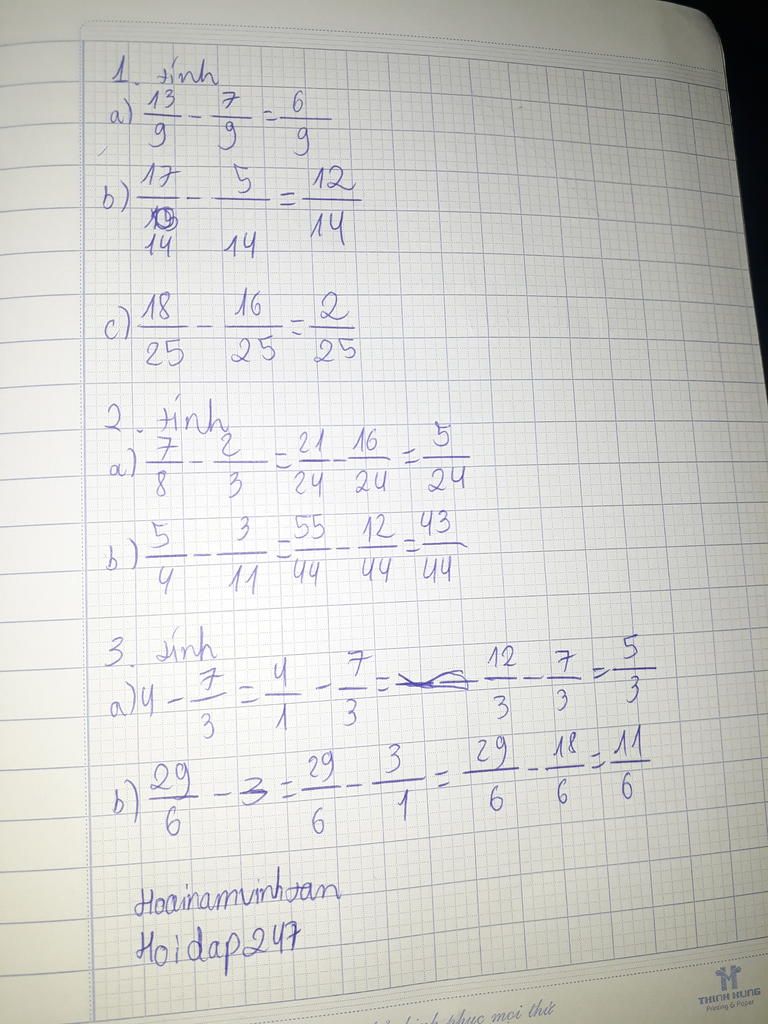 1. tính
a) 13/9 - 7/9 = 6/9
b) 17/14 - 5/14 = 12/14
c) 18/25 - 16/25 = 2/25
2. tính
a) 7/8 - 2/3 = 21/24 - 16/24 = 5/24
b) 5/4 - 3/11 = 55/44 - 12/44 = 43/44
3. tính
a) 4 - 7/3 = 4/1 - 7/3 = 12/3 - 7/3 = 5/3
b) 29/6 - 3 = 29/6 - 3/1 = 29/6 - 18/6 = 11/6
Hoainamvinhtan
Hoidap247
THINH HUNG
Printing & Paper
chinh phục mọi thử